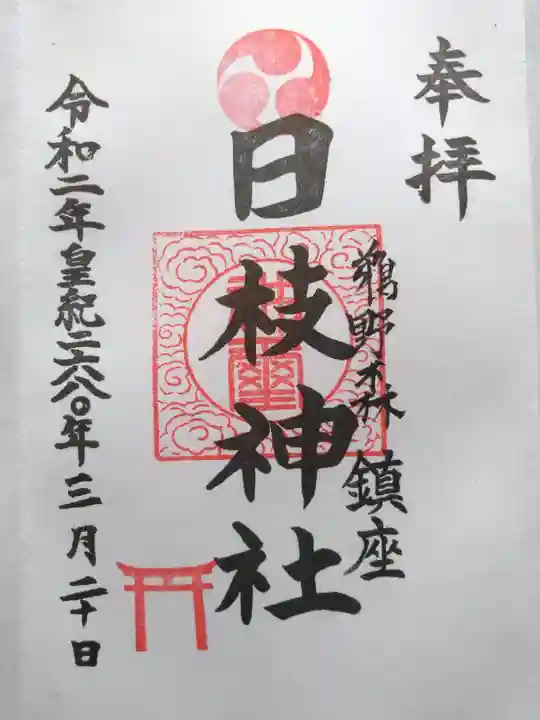 奉拝
鵜野森 鎮座
日枝神社
令和二年皇紀二六八〇年三月二十日